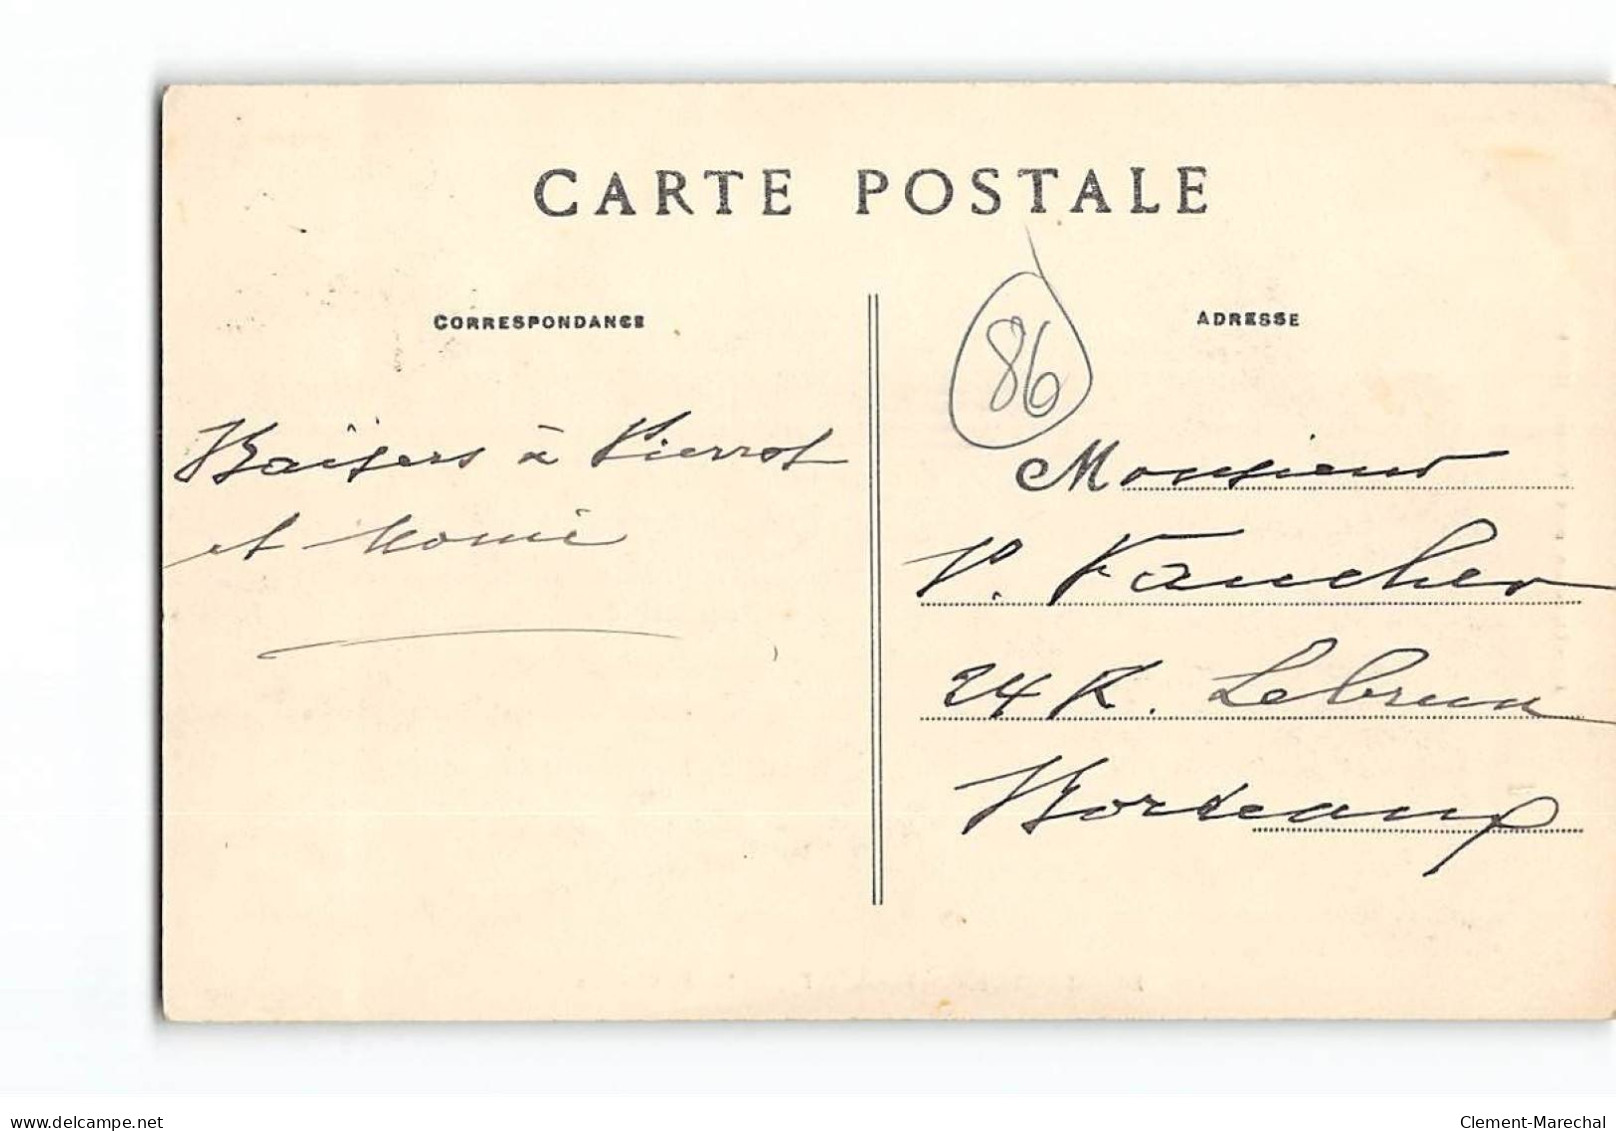 CARTE POSTALE
CORRESPONDANCE
ADRESSE
86
Baisers à Pierrot
et Momie
Monsieur
P. Faucher
24 R. Lebrun
Bordeaux
www.delcampe.net
Clement-Marechal